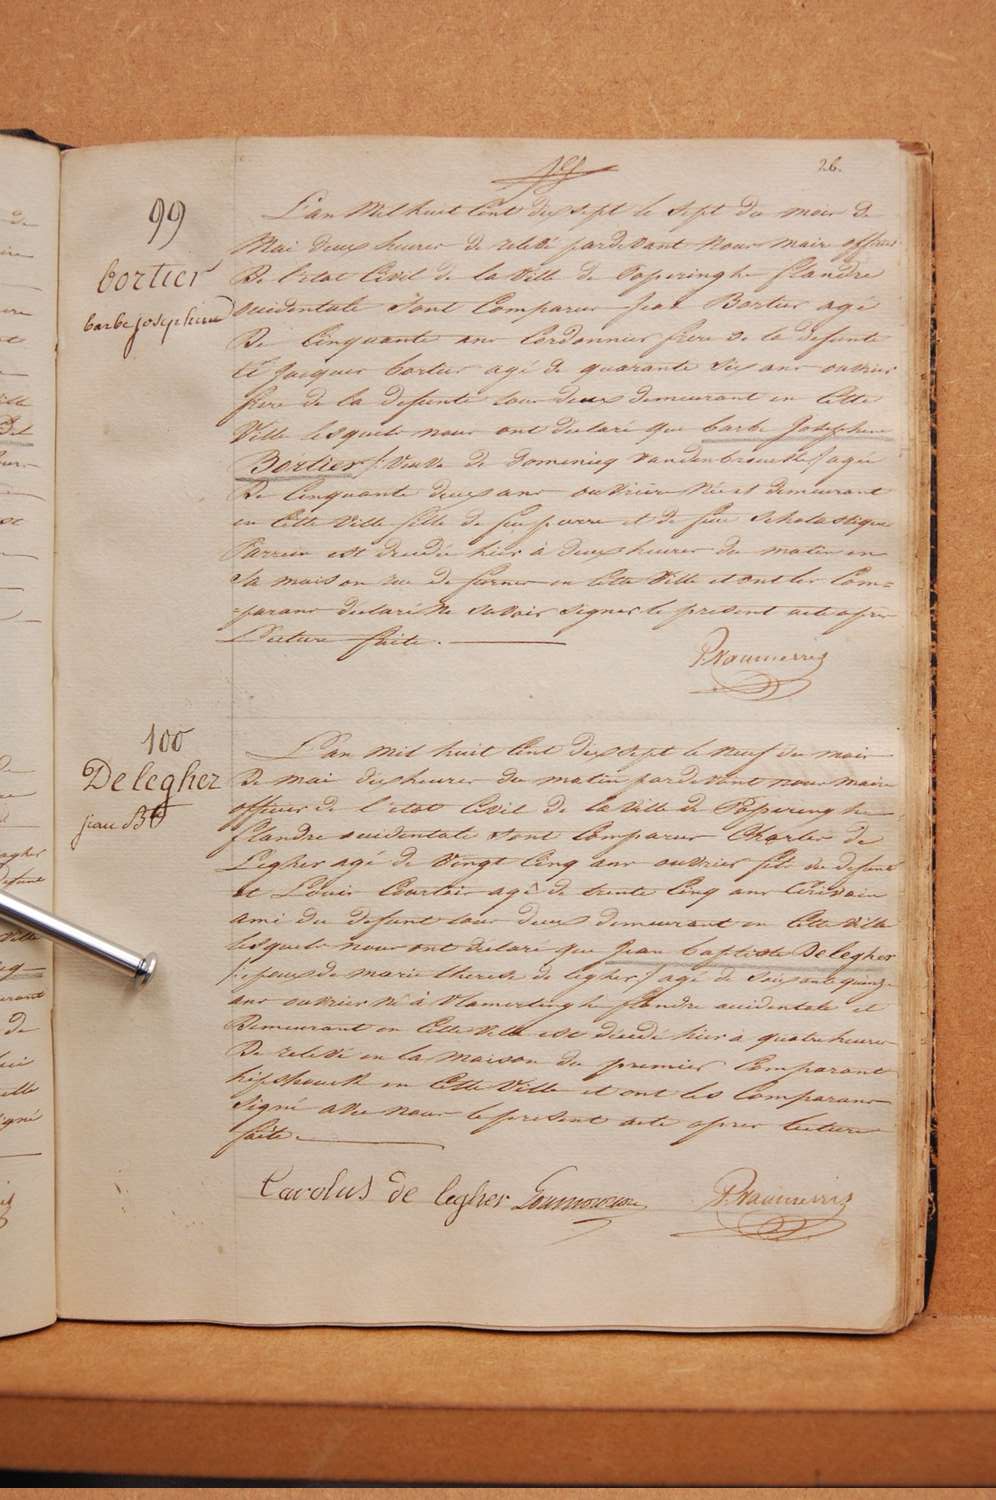 26.
99
bortier
barbe josephine
L'an Mil huit Cent dix sept le sept du mois de
Mai deux heures de relevé pardevant Nous maire officier
De l'etat Civil de la Ville de Poperinghe flandre
occidentale Sont Comparus jean Bortier agé
De Cinquante ans Cordonnier frere de la defunte
Et Jacques bortier agé de quarante six ans ouvrier
frere de la defunte tous deux demeurant en Cette
Ville lesquels nous ont declaré que barbe Josephine
Bortier /: Veuve de Dominicq vandenbrouckke / agée
De Cinquante deux ans ouvriere Née et demeurant
en Cette Ville fille de feu pierre et de feue Scholastique
est decedée hier à deux heures du matin en
Sa maison rue de furnes en Cette Ville et ont les Com=
=parans declaré Ne Savoir Signer le present acte apres
Lecture faite.
100
Delegher
jean Bte
L'an Mil huit Cent dix sept le neuf du mois
De mai dix heures du matin pardevant nous maire
officier de l'etat Civil de la Ville de Poperinghe
flandre occidentale Sont Comparus Charles de
Legher agé de Vingt Cinq ans ouvrier fils du defunt
et Louis agé de trente Cinq ans Ecrivain
ami du defunt tous deux demeurant en Cette Ville
lesquels nous ont declaré que Jean baptiste Delegher
/: epoux de marie therese de legher / agé de Soixante quinze
ans ouvrier né à Vlamertinghe flandre occidentale et
Demeurant en Cette Ville est décédé hier à quatre heures
De relevé en la maison du premier Comparant
hipshouck en Cette Ville et ont les Comparans
Signé avec nous le present acte apres lecture
faite.
Carolus de legher